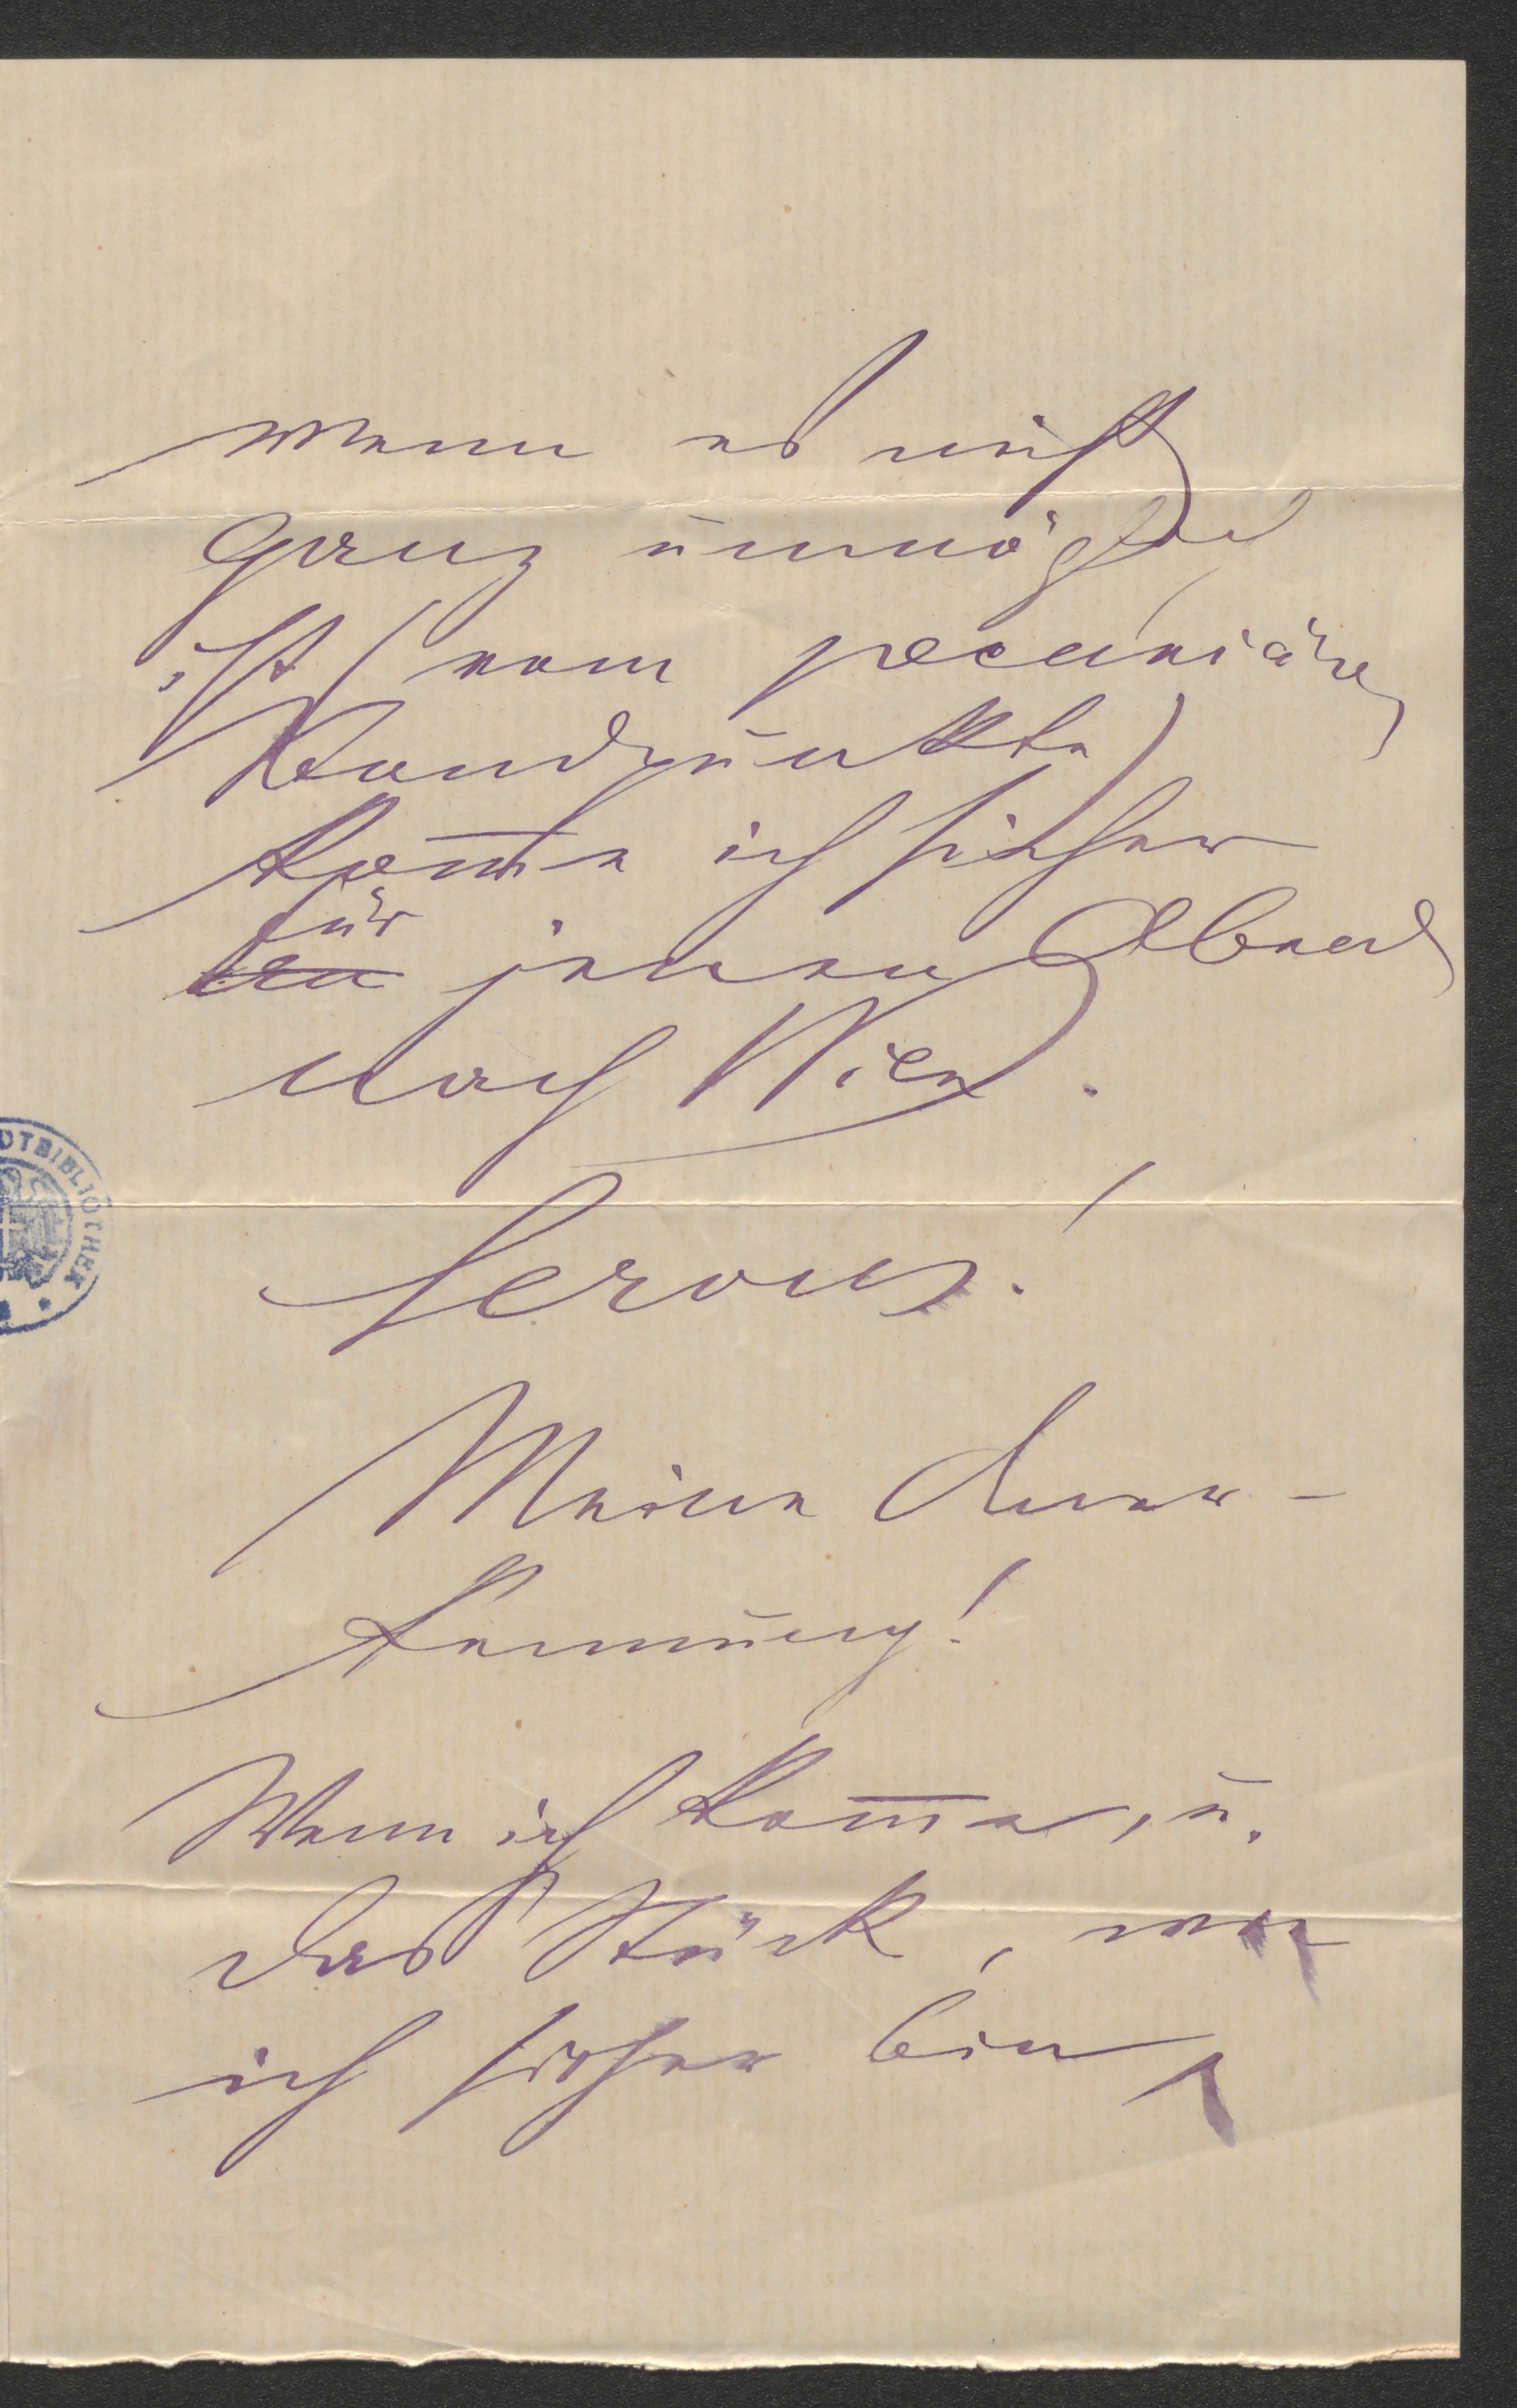 wenn es nicht
ganz unmöglich
ist (vom pecuniären
Standpunkte)
kom̄e ich sicher
für
an jenen Abend
nach Wien.
Servus!
Meine Aner-
kennung!
Wenn ich kom̄e, u.
das Stück, wie
ich sicher bin,
DTBIBLIOTHEK